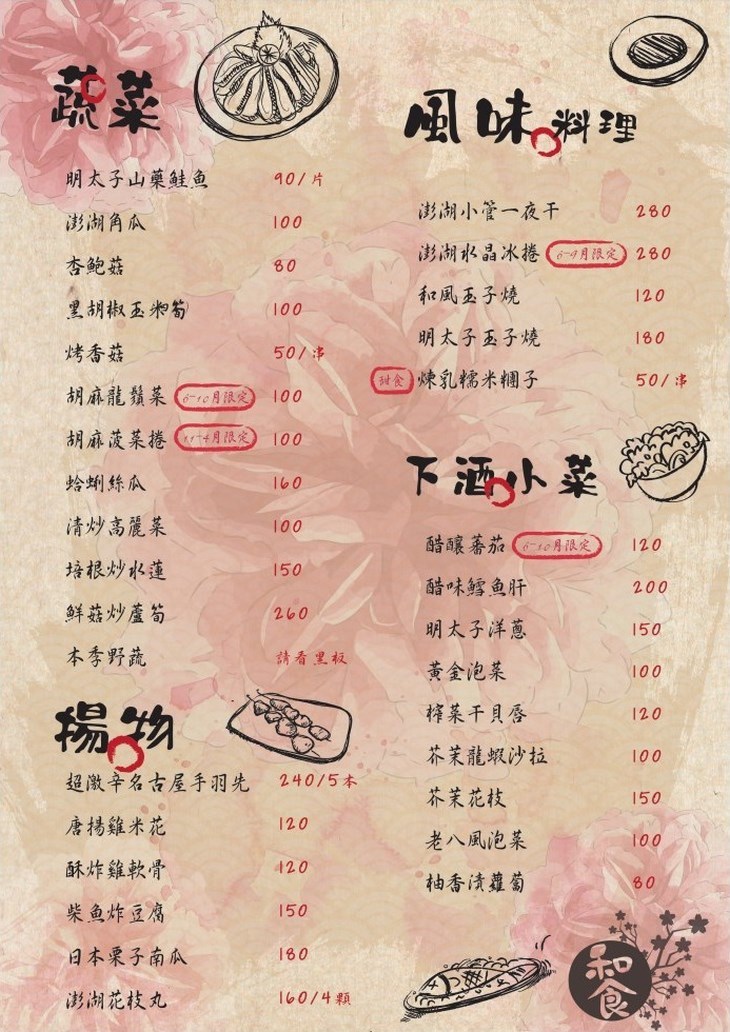 蔬菜
明太子山藥鮭魚 90/片
澎湖角瓜 100
杏鮑菇 80
黑胡椒玉米筍 100
烤香菇 50/串
胡麻龍鬚菜 6-10月限定 100
胡麻菠菜捲 11-4月限定 100
蛤蜊絲瓜 160
清炒高麗菜 100
培根炒水蓮 150
鮮菇炒蘆筍 260
本季野蔬 請看黑板
揚物
超激辛名古屋手羽先 240/5本
唐揚雞米花 120
酥炸雞軟骨 120
柴魚炸豆腐 150
日本栗子南瓜 180
澎湖花枝丸 160/4顆
風味料理
澎湖小管一夜干 280
澎湖水晶冰捲 6-9月限定 280
和風玉子燒 120
明太子玉子燒 180
甜食 煉乳糯米糰子 50/串
下酒小菜
醋釀蕃茄 6-10月限定 120
醋味鱈魚肝 200
明太子洋蔥 150
黃金泡菜 100
榨菜干貝唇 120
芥茉龍蝦沙拉 100
芥茉花枝 150
老八風泡菜 100
柚香漬蘿蔔 80
和食